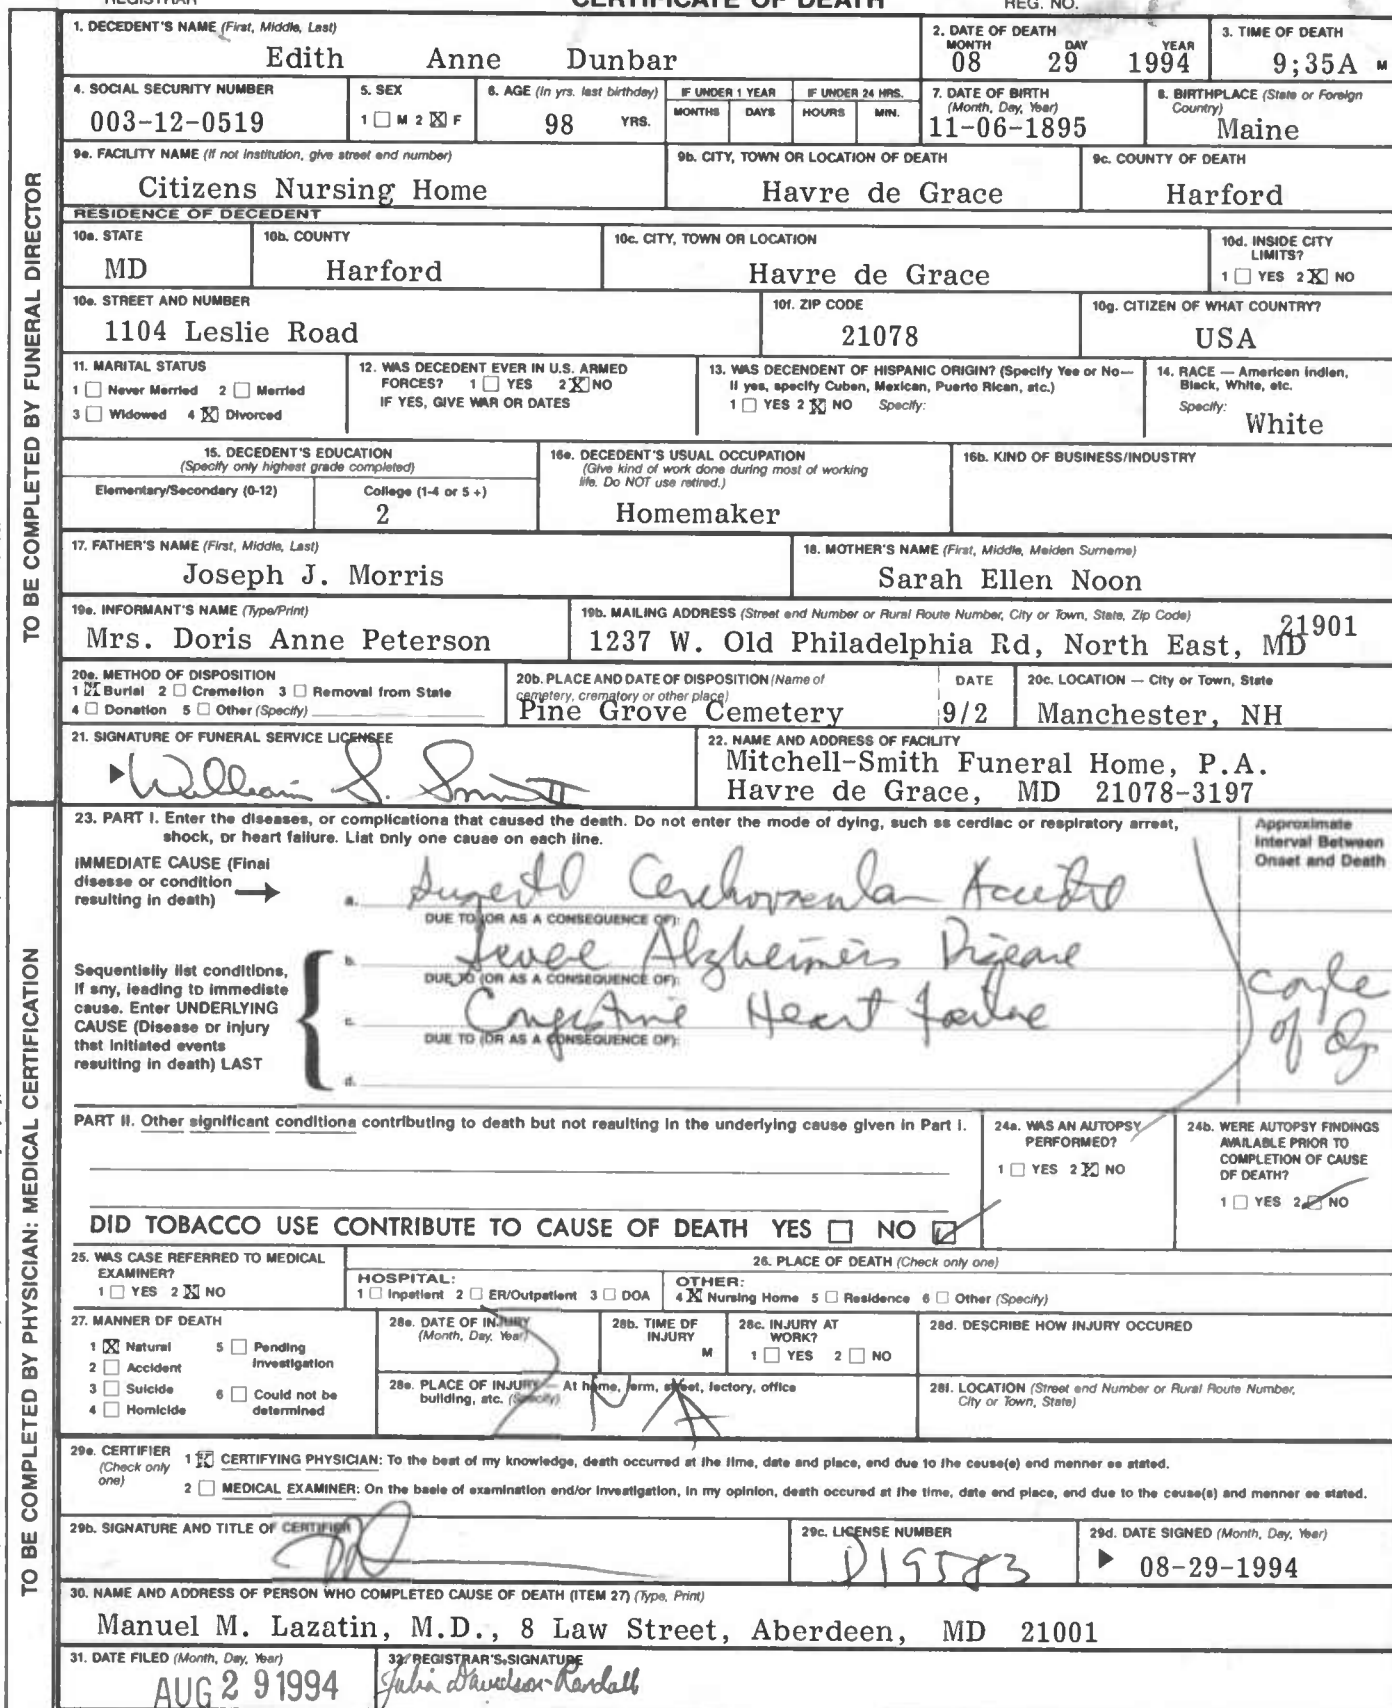 REGISTRAR CERTIFICATE OF DEATH REG. NO.
TO BE COMPLETED BY FUNERAL DIRECTOR
1. DECEDENT'S NAME (First, Middle, Last)
Edith Anne Dunbar
2. DATE OF DEATH
MONTH DAY YEAR
08 29 1994
3. TIME OF DEATH
9;35A M
4. SOCIAL SECURITY NUMBER
003-12-0519
5. SEX
1 ☐ M 2 ☒ F
6. AGE (In yrs. last birthday)
98 YRS.
IF UNDER 1 YEAR
MONTHS DAYS
IF UNDER 24 HRS.
HOURS MIN.
7. DATE OF BIRTH
(Month, Day, Year)
11-06-1895
8. BIRTHPLACE (State or Foreign
Country)
Maine
9a. FACILITY NAME (If not institution, give street and number)
Citizens Nursing Home
9b. CITY, TOWN OR LOCATION OF DEATH
Havre de Grace
9c. COUNTY OF DEATH
Harford
RESIDENCE OF DECEDENT
10a. STATE
MD
10b. COUNTY
Harford
10c. CITY, TOWN OR LOCATION
Havre de Grace
10d. INSIDE CITY
LIMITS?
1 ☐ YES 2 ☒ NO
10e. STREET AND NUMBER
1104 Leslie Road
10f. ZIP CODE
21078
10g. CITIZEN OF WHAT COUNTRY?
USA
11. MARITAL STATUS
1 ☐ Never Married 2 ☐ Married
3 ☐ Widowed 4 ☒ Divorced
12. WAS DECEDENT EVER IN U.S. ARMED
FORCES? 1 ☐ YES 2 ☒ NO
IF YES, GIVE WAR OR DATES
13. WAS DECENDENT OF HISPANIC ORIGIN? (Specify Yes or No—
If yes, specify Cuban, Mexican, Puerto Rican, etc.)
1 ☐ YES 2 ☒ NO Specify:
14. RACE — American Indian,
Black, White, etc.
Specify:
White
15. DECEDENT'S EDUCATION
(Specify only highest grade completed)
Elementary/Secondary (0-12) College (1-4 or 5 +)
2
16a. DECEDENT'S USUAL OCCUPATION
(Give kind of work done during most of working
life. Do NOT use retired.)
Homemaker
16b. KIND OF BUSINESS/INDUSTRY
17. FATHER'S NAME (First, Middle, Last)
Joseph J. Morris
18. MOTHER'S NAME (First, Middle, Maiden Surname)
Sarah Ellen Noon
19a. INFORMANT'S NAME (Type/Print)
Mrs. Doris Anne Peterson
19b. MAILING ADDRESS (Street and Number or Rural Route Number, City or Town, State, Zip Code)
1237 W. Old Philadelphia Rd, North East, MD 21901
20a. METHOD OF DISPOSITION
1 ☒ Burial 2 ☐ Cremation 3 ☐ Removal from State
4 ☐ Donation 5 ☐ Other (Specify)
20b. PLACE AND DATE OF DISPOSITION (Name of
cemetery, crematory or other place)
Pine Grove Cemetery
DATE
9/2
20c. LOCATION — City or Town, State
Manchester, NH
21. SIGNATURE OF FUNERAL SERVICE LICENSEE
William S. Smith II
22. NAME AND ADDRESS OF FACILITY
Mitchell-Smith Funeral Home, P.A.
Havre de Grace, MD 21078-3197
TO BE COMPLETED BY PHYSICIAN: MEDICAL CERTIFICATION
23. PART I. Enter the diseases, or complications that caused the death. Do not enter the mode of dying, such as cardiac or respiratory arrest,
shock, or heart failure. List only one cause on each line.
Approximate
Interval Between
Onset and Death
IMMEDIATE CAUSE (Final
disease or condition
resulting in death)
a. Cerebrovascular Accident
DUE TO (OR AS A CONSEQUENCE OF):
Sequentially list conditions,
if any, leading to immediate
cause. Enter UNDERLYING
CAUSE (Disease or injury
that initiated events
resulting in death) LAST
b. Severe Alzheimers Disease
DUE TO (OR AS A CONSEQUENCE OF):
c. Congestive Heart Failure
DUE TO (OR AS A CONSEQUENCE OF):
d.
PART II. Other significant conditions contributing to death but not resulting in the underlying cause given in Part I.
24a. WAS AN AUTOPSY
PERFORMED?
1 ☐ YES 2 ☒ NO
24b. WERE AUTOPSY FINDINGS
AVAILABLE PRIOR TO
COMPLETION OF CAUSE
OF DEATH?
1 ☐ YES 2 ☑ NO
DID TOBACCO USE CONTRIBUTE TO CAUSE OF DEATH YES ☐ NO ☑
25. WAS CASE REFERRED TO MEDICAL
EXAMINER?
1 ☐ YES 2 ☒ NO
26. PLACE OF DEATH (Check only one)
HOSPITAL:
1 ☐ Inpatient 2 ☐ ER/Outpatient 3 ☐ DOA
OTHER:
4 ☒ Nursing Home 5 ☐ Residence 6 ☐ Other (Specify)
27. MANNER OF DEATH
1 ☒ Natural 5 ☐ Pending
Investigation
2 ☐ Accident
3 ☐ Suicide 6 ☐ Could not be
determined
4 ☐ Homicide
28a. DATE OF INJURY
(Month, Day, Year)
28b. TIME OF
INJURY
M
28c. INJURY AT
WORK?
1 ☐ YES 2 ☐ NO
28d. DESCRIBE HOW INJURY OCCURED
28e. PLACE OF INJURY — At home, farm, street, factory, office
building, etc. (Specify)
NA
28f. LOCATION (Street and Number or Rural Route Number,
City or Town, State)
29a. CERTIFIER
(Check only
one)
1 ☒ CERTIFYING PHYSICIAN: To the best of my knowledge, death occurred at the time, date and place, and due to the cause(s) and manner as stated.
2 ☐ MEDICAL EXAMINER: On the basis of examination and/or investigation, in my opinion, death occured at the time, date and place, and due to the cause(s) and manner as stated.
29b. SIGNATURE AND TITLE OF CERTIFIER
29c. LICENSE NUMBER
D19583
29d. DATE SIGNED (Month, Day, Year)
08-29-1994
30. NAME AND ADDRESS OF PERSON WHO COMPLETED CAUSE OF DEATH (ITEM 27) (Type, Print)
Manuel M. Lazatin, M.D., 8 Law Street, Aberdeen, MD 21001
31. DATE FILED (Month, Day, Year)
AUG 29 1994
32. REGISTRAR'S SIGNATURE
Julia Davidson-Randall